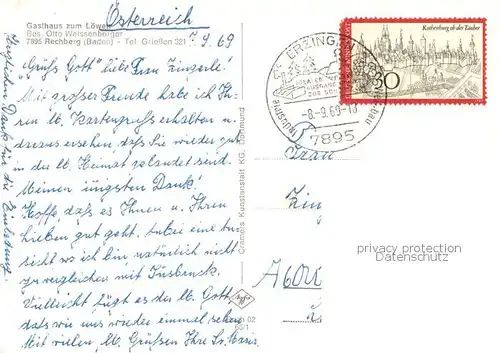 Österreich
Gasthaus zum Löwen
Bes. Otto Weissenberger
7895 Rechberg (Baden) - Tel. Grießen 321
7.9.69
"Grüß Gott" liebe Frau Zingerle!
Mit großer Freude habe ich Ihren
lb. Kartengruß erhalten u.
daraus ersehen, daß Sie wieder gut
in der lb. Heimat gelandet sind.
Meinen innigsten Dank!
Hoffe daß es Ihnen u. Ihren
Lieben gut geht.
sicht wo ich bin natürlich nicht
zu vergleichen mit Insbruck.
Vielleicht fügt es der lb. Gott
daß wir uns wieder einmal sehen.
Mit vielen lb. Grüßen Ihre
Herzlichen Dank für die Einladung!
Cramers Kunstanstalt KG, Dortmund
02
66/1
ERZINGEN
Industrie
-8.-9.69-18
7895
Rothenburg ob der Tauber
30
Frau
Zin
A 60
privacy protection
Datenschutz